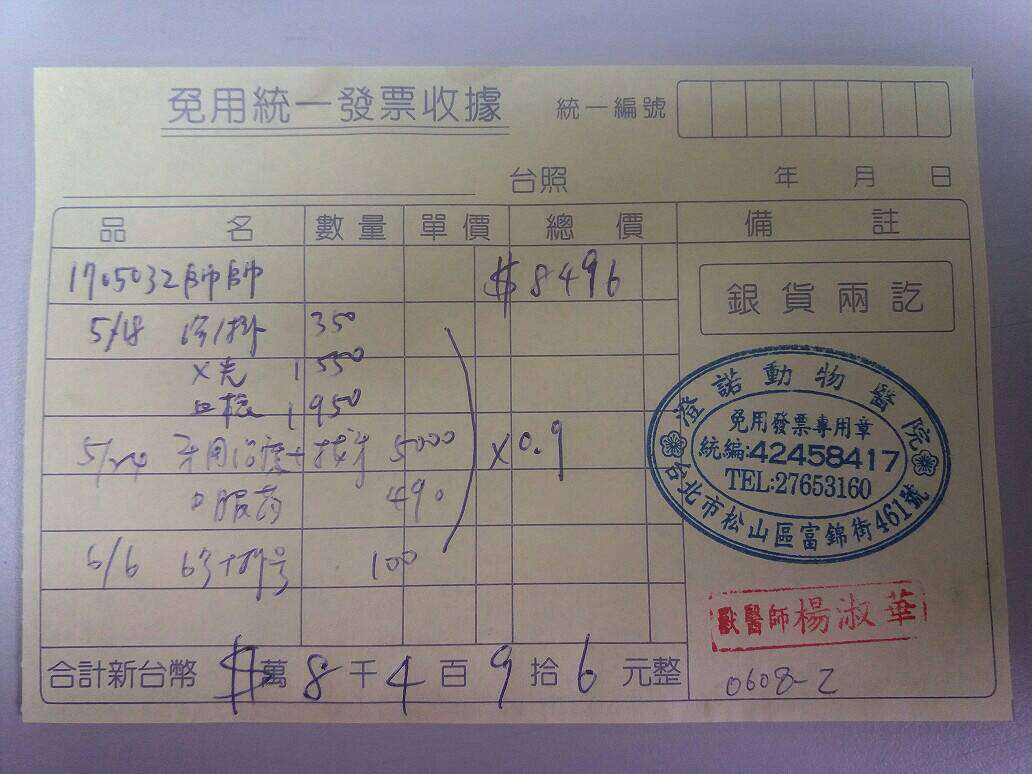 免用統一發票收據
統一編號
台照 年 月 日
品名 數量 單價 總價 備註
1705032 帥帥 $8496
銀貨兩訖
5/18 診/掛 350
X光 1550
血檢 1950
5/24 牙周治療+拔牙 5000 x0.9
口服药 490
6/6 診+掛号 100
澄諾動物醫院
免用發票專用章
統編:42458417
TEL:27653160
台北市松山區富錦街461號
獸醫師楊淑華
合計新台幣 $萬8千4百9拾6元整
0608-2